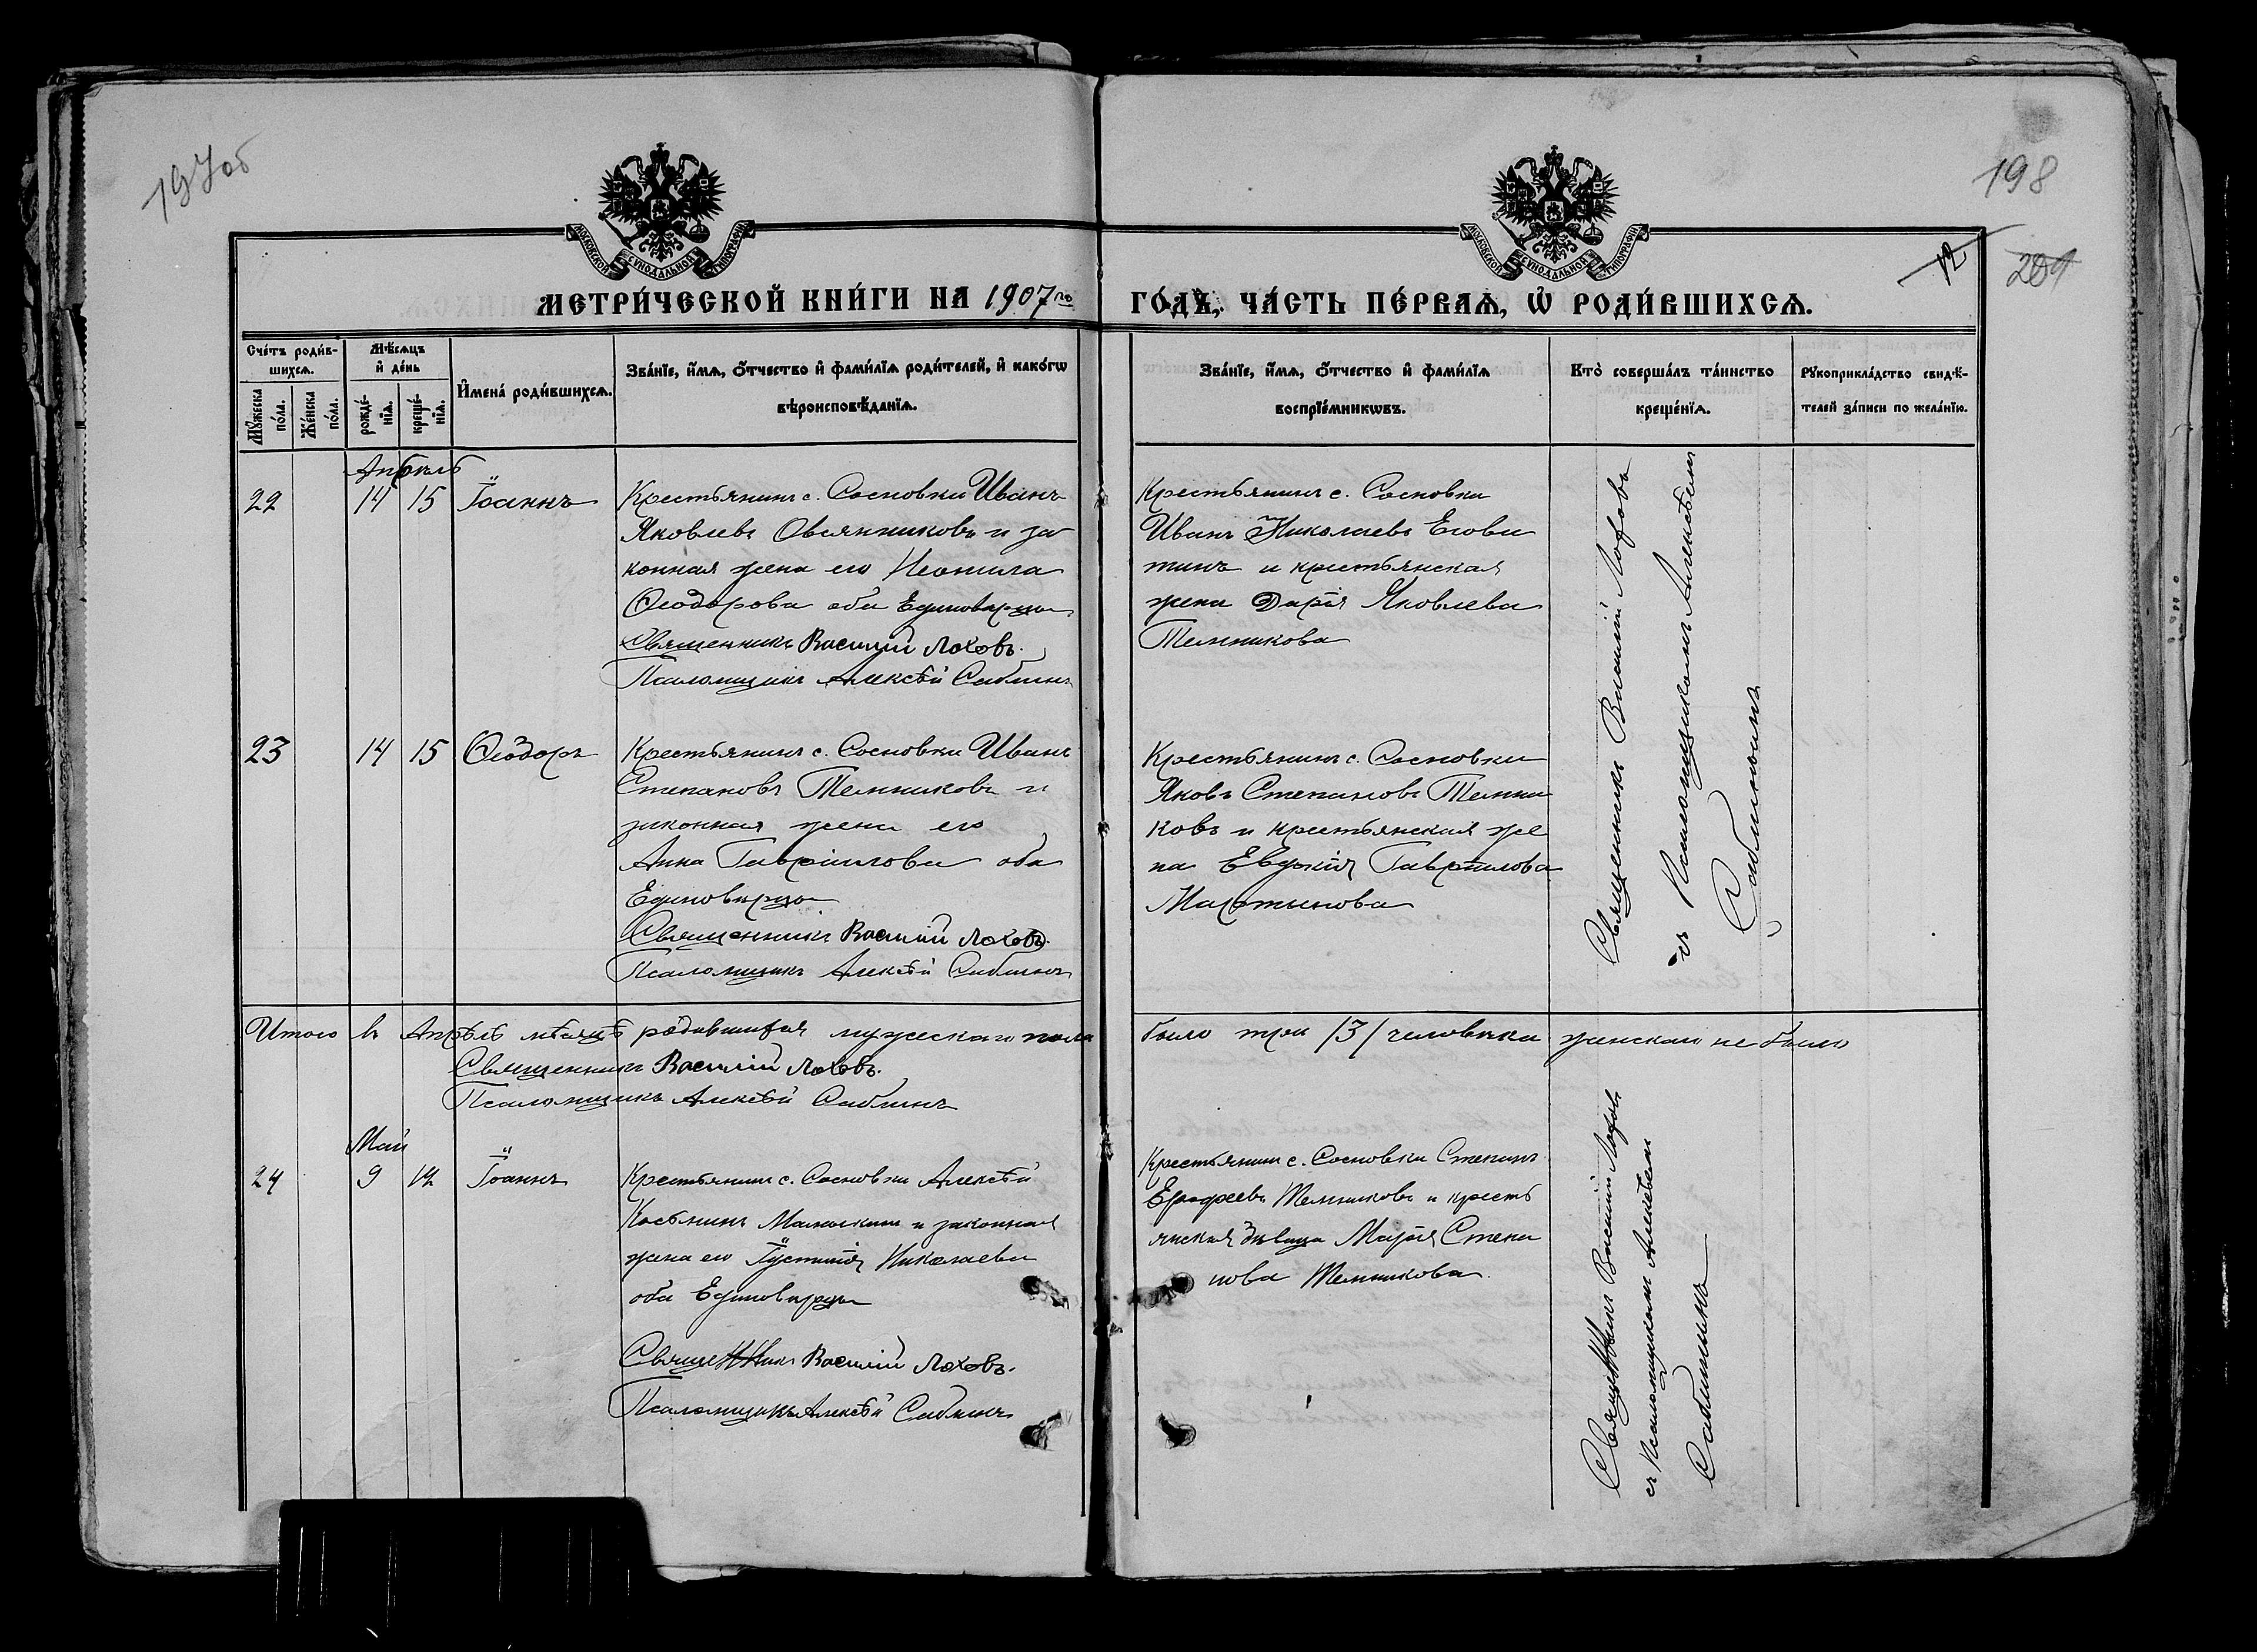 197об
198
12
201
МОСКОВСКОЙ СѴНОДАЛЬНОЙ ТИПОГРАФІИ
МОСКОВСКОЙ СѴНОДАЛЬНОЙ ТИПОГРАФІИ
МЕТРИ́ЧЕСКОЙ КНИ́ГИ НА 1907го
ГО́ДЪ, ЧА́СТЬ ПЕ́РВАѦ, Ѡ҆ РОДИ́ВШИХСѦ.
Сче́тъ роди́в-
шихсѧ.
Мꙋ́жеска по́ла.
Же́нска по́ла.
Мѣ́сѧцъ
и҆ де́нь
рожде́-
нїѧ.
креще́-
нїѧ.
И҆мена̀ роди́вшихсѧ.
Зва́нїе, и҆́мѧ, ѻ҆́тчество и҆ фами́лїѧ роди́телей, и҆ како́гѡ
вѣроисповѣ́данїѧ.
Зва́нїе, и҆́мѧ, ѻ҆́тчество и҆ фами́лїѧ
воспрїе́мникѡвъ.
Кто̀ соверша́лъ та́инство
креще́нїѧ.
Рꙋкоприкла́дство свидѣ́-
телей за́писи по жела́нїю.
Апрѣль
22 14 15 Іоаннъ
Крестьянинъ с. Сосновки Иванъ
Яковлевъ Овсянниковъ и за
конная жена его Неонила
Ѳеодорова оба Единоверцы
Священникъ Василій Лоховъ.
Псаломщикъ Алексѣй Саблинъ
Крестьянинъ с. Сосновки
Иванъ Николаевъ Егови
тинъ и крестьянская
жена Дарія Яковлева
Темникова
Священникъ Василій Лоховъ
съ Псаломщикомъ Алексѣемъ
Саблинымъ
23 14 15 Ѳеодоръ
Крестьянинъ с. Сосновки Иванъ
Степановъ Темниковъ и
законная жена его
Анна Гавріилова оба
Единоверцы
Священникъ Василій Лоховъ.
Псаломщикъ Алексѣй Саблинъ
Крестьянинъ с. Сосновки
Яковъ Степановъ Темни
ковъ и крестьянская же
на Евдокія Гавріилова
Мартынова
Итого въ Апрѣлѣ мѣсяцѣ родившихся мужескаго пола было три /3/ человѣка женскаго не было
Священникъ Василій Лоховъ.
Псаломщикъ Алексѣй Саблинъ
Май
24 9 12 Іоаннъ
Крестьянинъ с. Сосновки Алексѣй
Косьминъ и законная
жена его Іустинія Николаева
оба Единоверцы
Священникъ Василій Лоховъ.
Псаломщикъ Алексѣй Саблинъ
Крестьянинъ с. Сосновки Степанъ
Ерофеевъ Темниковъ и кресть
янская дѣвица Марія Степа
нова Темникова
Священникъ Василій Лоховъ
съ Псаломщикомъ Алексѣемъ
Саблинымъ